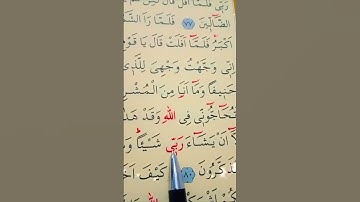 رَبِّى فَلَمَّٓا اَفَلَ قَالَ لَئِنْ
الضَّٓالِّينَ ٧٧ فَلَمَّا رَاَ الشَّ
اَكْبَرُ فَلَمَّٓا اَفَلَتْ قَالَ يَا قَوْ
اِنِّى وَجَّهْتُ وَجْهِىَ لِلَّذِى
حَنِيفًا وَمَٓا اَنَا مِنَ الْمُشْرِ
تُحَٓاجُّٓونِّى فِى اللّٰهِ وَقَدْ هَدٰ
اَنْ يَشَٓاءَ رَبِّى شَيْـًٔا وَ
ذَكَّرُونَ ٨٠ كَيْفَ اَخَ